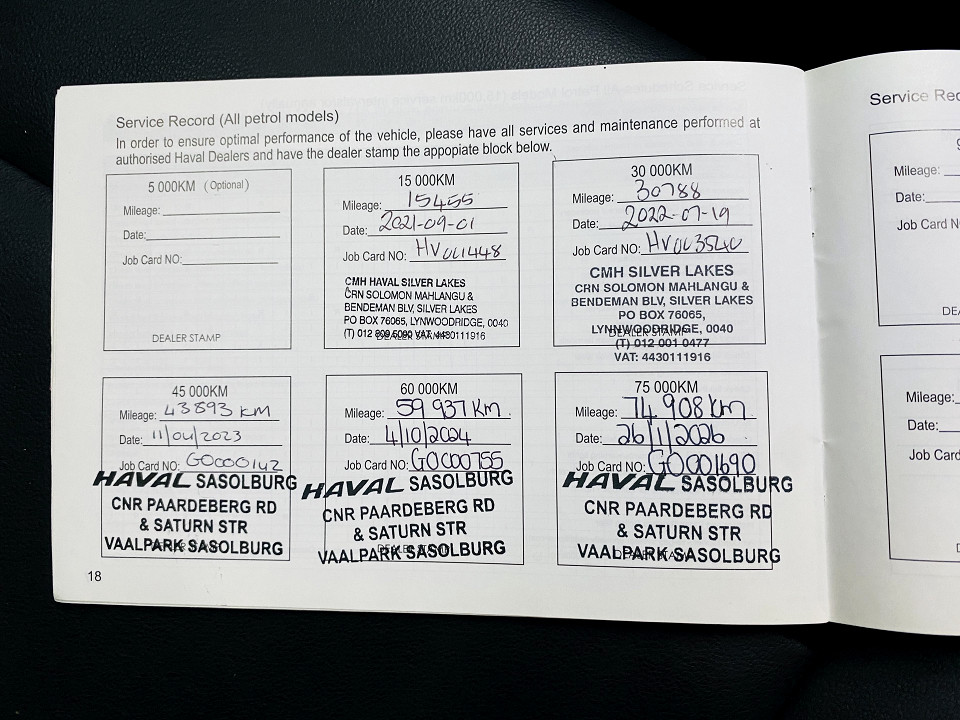 Service Record (All petrol models)
In order to ensure optimal performance of the vehicle, please have all services and maintenance performed at
authorised Haval Dealers and have the dealer stamp the appopiate block below.
5 000KM (Optional)
Mileage:
Date:
Job Card NO:
DEALER STAMP
15 000KM
Mileage: 15455
Date: 2021-09-01
Job Card NO: HV001448
CMH HAVAL SILVER LAKES
CRN SOLOMON MAHLANGU &
BENDEMAN BLV, SILVER LAKES
PO BOX 76065, LYNWOODRIDGE, 0040
(T) 012 809 6090 VAT: 4430111916
DEALER STAMP
30 000KM
Mileage: 30788
Date: 2022-07-19
Job Card NO: HV003540
CMH SILVER LAKES
CRN SOLOMON MAHLANGU &
BENDEMAN BLV, SILVER LAKES
PO BOX 76065,
LYNNWOODRIDGE, 0040
DEALER STAMP
(T) 012 001 0477
VAT: 4430111916
45 000KM
Mileage: 43893 KM
Date: 11/04/2023
Job Card NO: GO000142
HAVAL SASOLBURG
CNR PAARDEBERG RD
& SATURN STR
VAALPARK SASOLBURG
60 000KM
Mileage: 59 937 Km
Date: 4/10/2024
Job Card NO: GO000755
HAVAL SASOLBURG
CNR PAARDEBERG RD
& SATURN STR
VAALPARK SASOLBURG
DEALER STAMP
75 000KM
Mileage: 74 908 km
Date: 26/1/2026
Job Card NO: GO001690
HAVAL SASOLBURG
CNR PAARDEBERG RD
& SATURN STR
VAALPARK SASOLBURG
DEALER STAMP
18
Service Rec
9
Mileage:
Date:
Job Card NO
DEA
Mileage:
Date:
Job Card NO
D